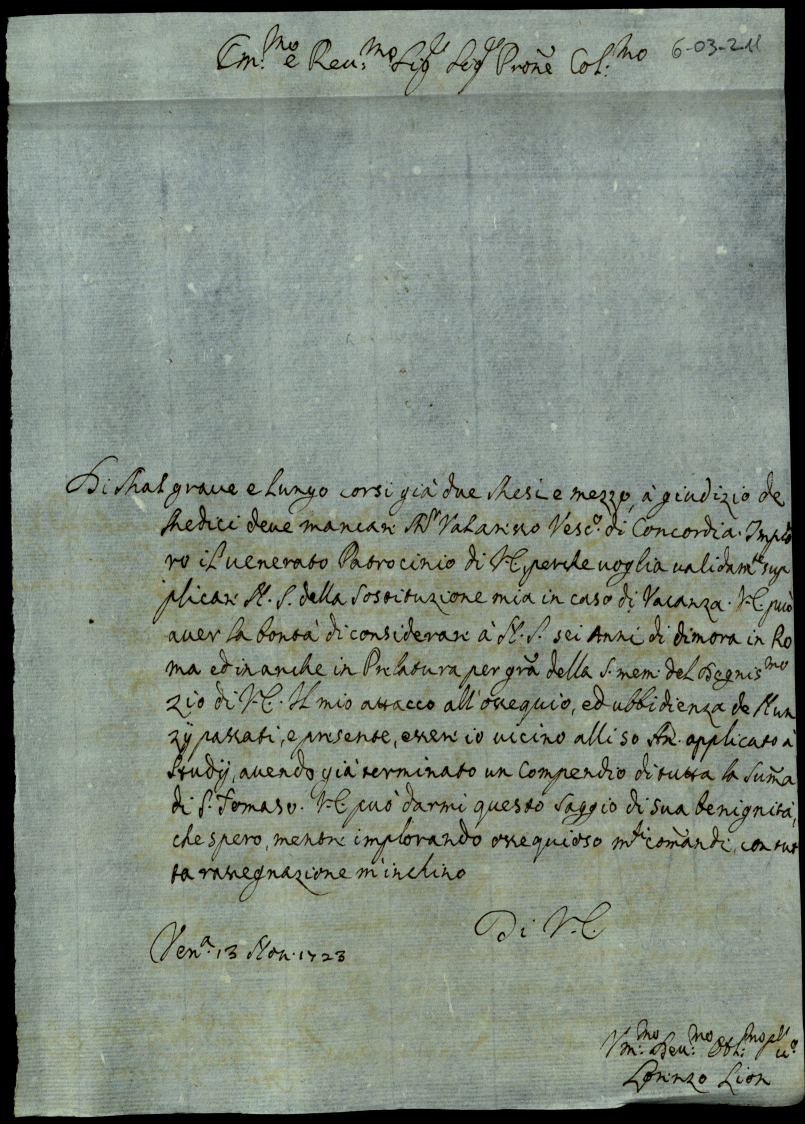 Em.mo e Reu.mo Sig.r Sig.r Prone Col.mo
6-03-2-11
Di Mal graue e lungo corsi già due Mesi e mezzo, à giudizio de
Medici deue mancare M.r Valaresso Vesc.o di Concordia. Implo
ro il uenerato Patrocinio di V.E. perche uoglia validam.te sup
plicare N. S. della Sostituzione mia in caso di Vacanza. V.E. può
auer la bontà di considerare à N. S. sei Anni di dimora in Ro
ma ed in anche in Prelatura per gra della S. mem. del Degnis.mo
Zio di V.E. Il mio attacco all'ossequio, ed ubbidienza de Nun
zÿ passati, e presente, essere io uicino alli 50 An. applicato à
Studÿ, auendo già terminato un Compendio di tutta la Suma
di S. Tomaso. V.E. può darmi questo Saggio di sua benignità,
che spero, mentre implorando ossequioso m.ti comandi, con tut
ta rassegnazione m'inchino
Di V.E.
Ven.a 13 Nou. 1723
Vm.mo Deu.mo Obl.mo
Lorenzo Lion